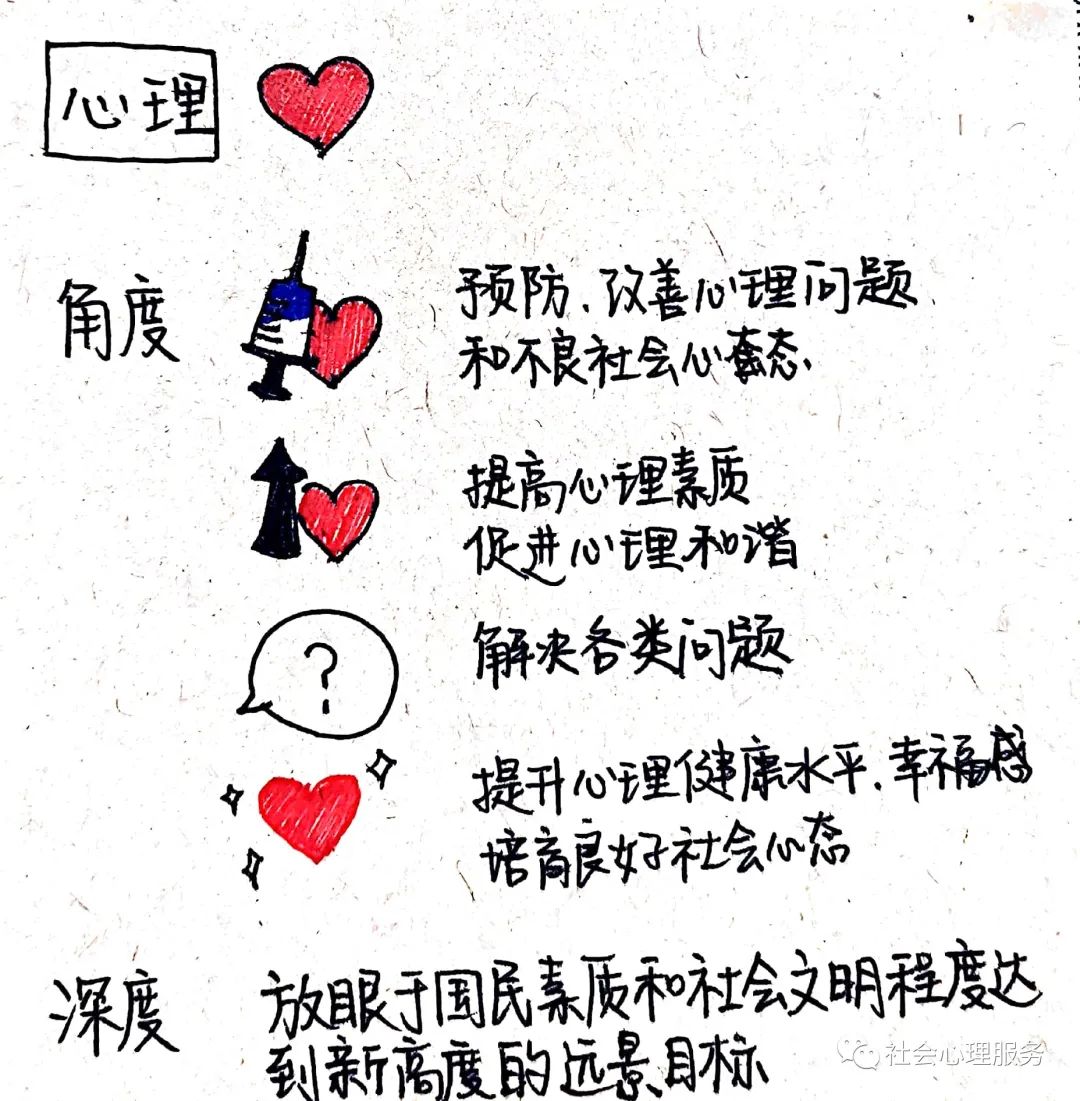 心理
角度
预防、改善心理问题
和不良社会心态、
提高心理素质
促进心理和谐
?
解决各类问题
提升心理健康水平、幸福感
培育良好社会心态
深度
放眼于国民素质和社会文明程度达
到新高度的远景目标
社会心理服务